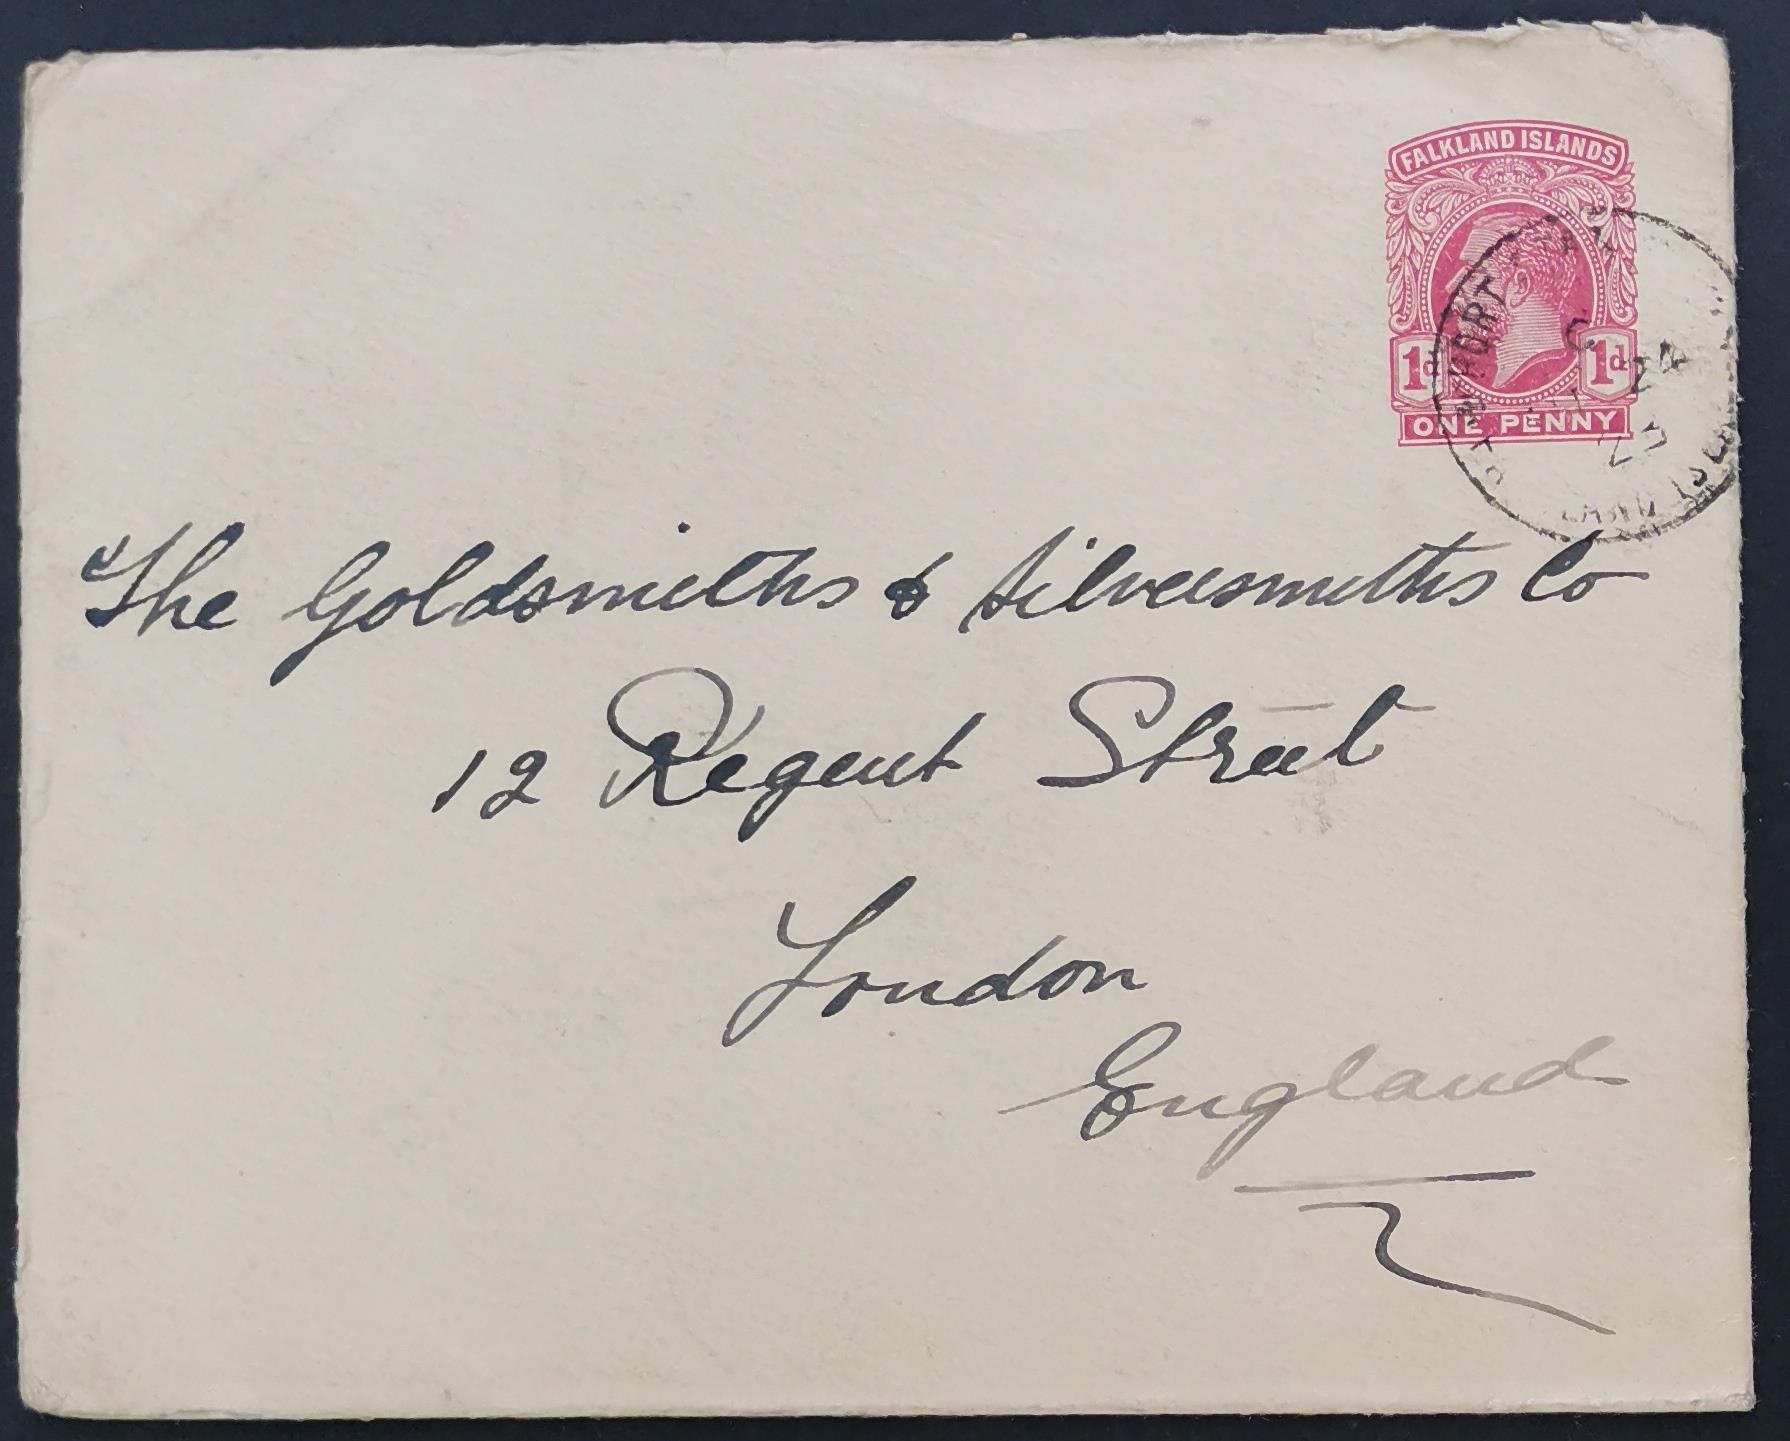 FALKLAND ISLANDS
1d 1d
ONE PENNY
C
24
The Goldsmiths & Silversmiths Co
12 Regent Street
London
England